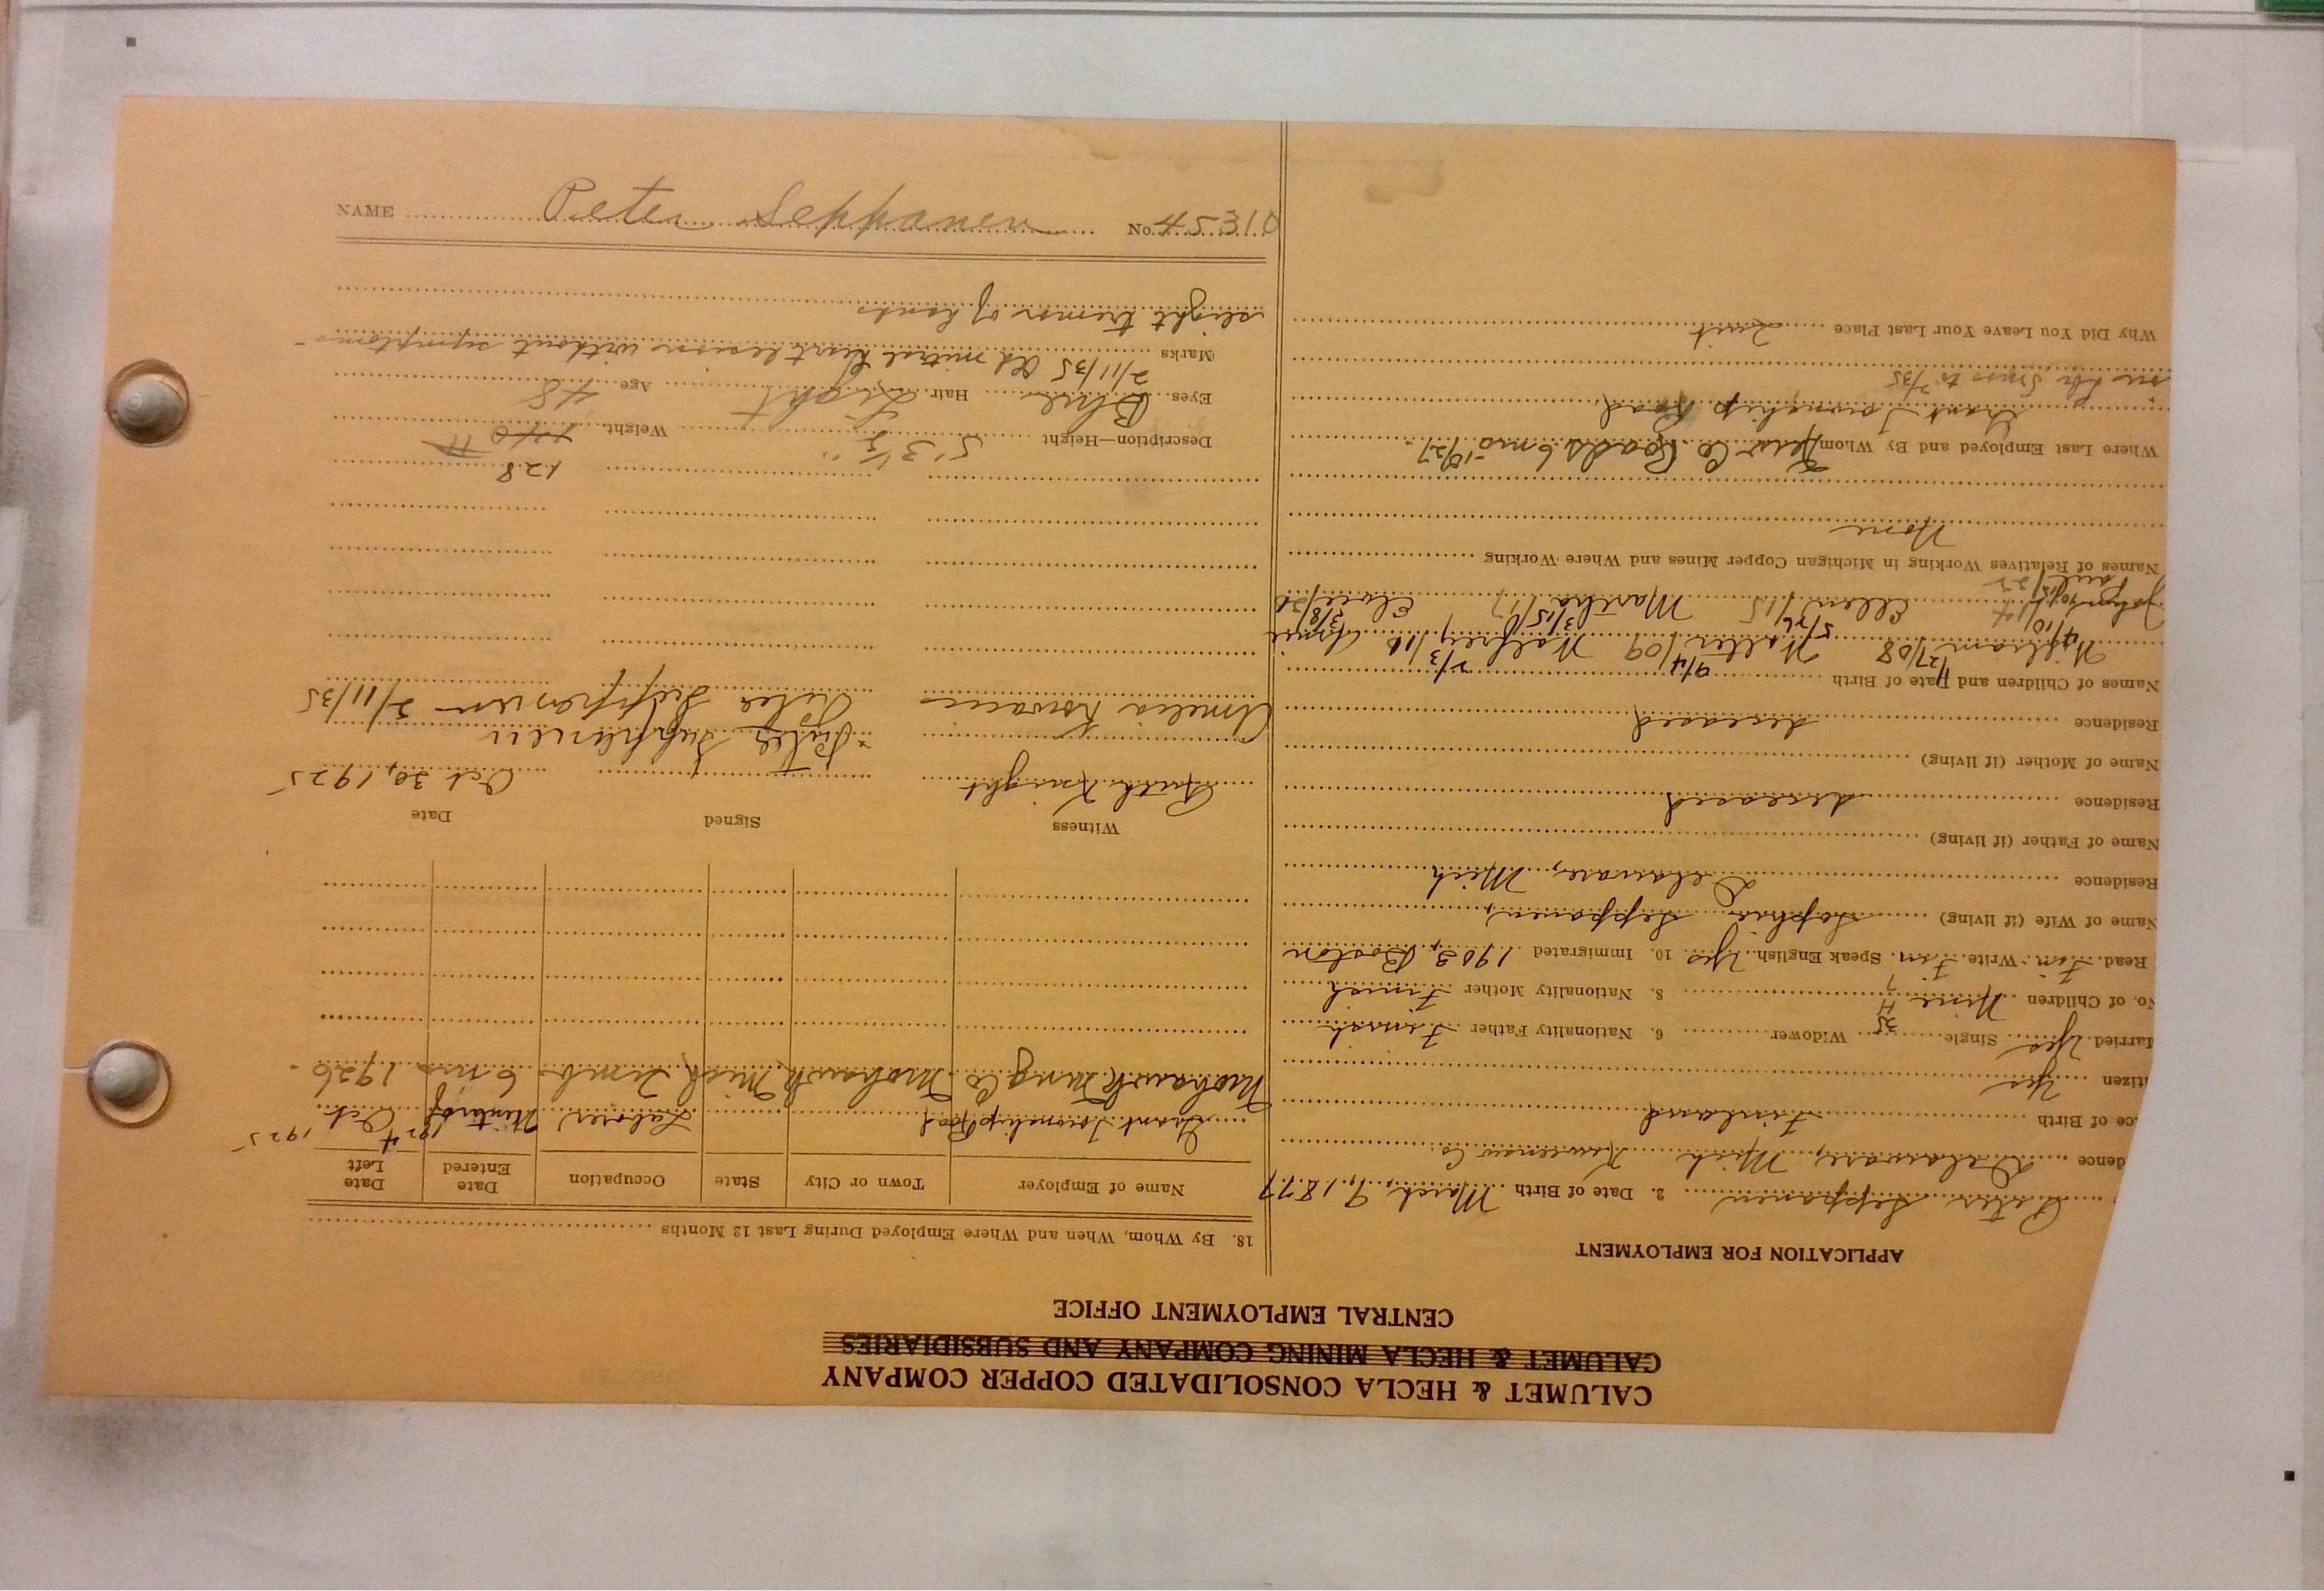 NAME Peter Seppanen No. 45310
CALUMET & HECLA CONSOLIDATED COPPER COMPANY
CALUMET & HECLA MINING COMPANY AND SUBSIDIARIES
CENTRAL EMPLOYMENT OFFICE
APPLICATION FOR EMPLOYMENT
Peter Seppanen 2. Date of Birth March 9, 1877
dence Delaware, Mich Keweenaw Co.
ce of Birth Finland
itizen Yes
arried Yes Single Widower 35 6. Nationality Father Finnish
No. of Children Nine 8. Nationality Mother Finnish
Read Fin. Write Fin. Speak English Yes 10. Immigrated 1903, Boston
Name of Wife (if living) Sophia Seppanen,
Residence Delaware, Mich
Name of Father (if living)
Residence deceased
Name of Mother (if living)
Residence deceased
Names of Children and Date of Birth
William 1/27/08 Walter 9/4/09 Walfrey 2/3/
4/10 5/26 3/15 3/8
Ellen/15 Martha/17
Names of Relatives Working in Michigan Copper Mines and Where Working
None
Where Last Employed and By Whom Kew Co. Roads 6 mo - 10/27 -
Grant Township Road
to 2/35
Why Did You Leave Your Last Place Quit
18. By Whom, When and Where Employed During Last 12 Months
Name of Employer Town or City State Occupation Date Entered Date Left
Grant Township Road Laborer Winter of 1924 Oct 1925
Mohawk Mng Co Mohawk Mich 6 mos 1926 -
Witness Signed Date
Ruth Knight Peter Seppanen Oct 30, 1925
Amelia Kovacic Peter Seppanen - 2/11/35
128
Description—Height 5' 3 1/2" Weight 140 lb
Eyes Blue Hair Light Age 48
Marks 2/11/35 Old mitral heart lesion without symptoms -
slight tremor of hands